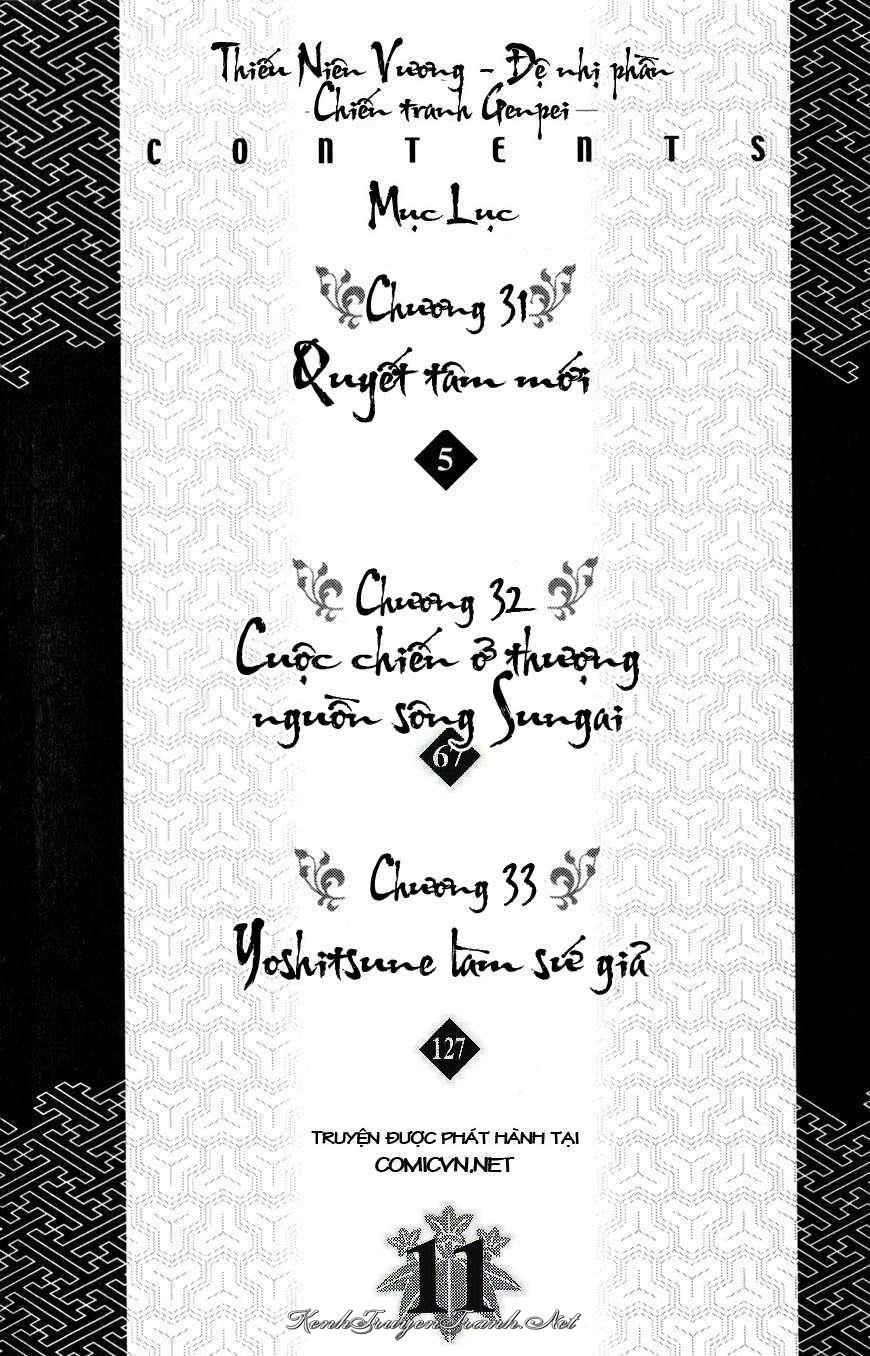 Thiếu Niên Vương - Đệ nhị phần
-Chiến tranh Genpei-
CONTENTS
Mục Lục
Chương 31
Quyết tâm mới
5
Chương 32
Cuộc chiến ở thượng
nguồn sông Sungai
67
Chương 33
Yoshitsune làm sứ giả
127
TRUYỆN ĐƯỢC PHÁT HÀNH TẠI
COMICVN.NET
11
KenhTruyenTranh.Net